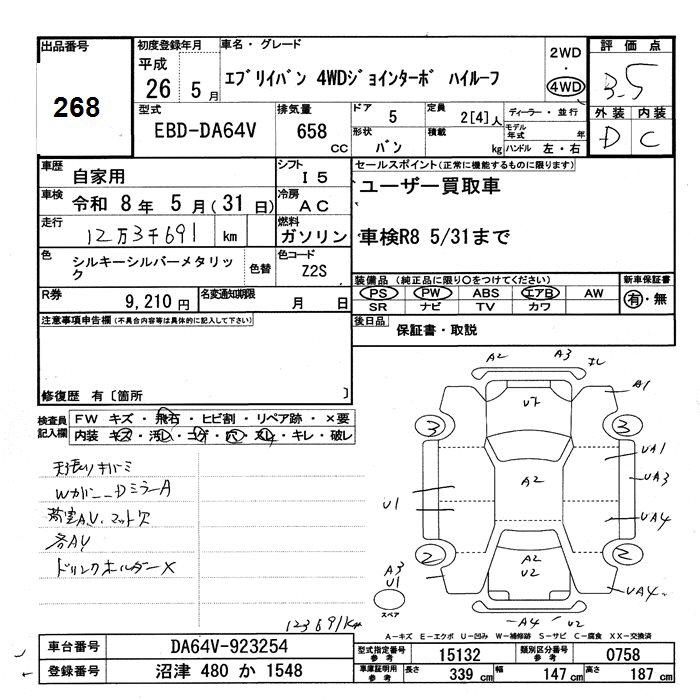 出品番号
268
初度登録年月
平成
26 年 5 月
車名・グレード
エブリイバン 4WDジョインターボ ハイルーフ
2WD
・
4WD
評価点
3.5
外装 内装
D C
型式
EBD-DA64V
排気量
658 CC
ドア 5
形状 バン
定員 2[4]人
積載 kg
ディーラー・並行
モデル年式 年
ハンドル 左・右
車歴 自家用
シフト I5
車検 令和 8 年 5 月(31 日)
冷房 AC
走行 12万3千691 km
燃料 ガソリン
色 シルキーシルバーメタリック
色替
色コード Z2S
R券 9,210 円
名変通知期限 月 日
セールスポイント(正常に機能するものに限ります)
ユーザー買取車
車検R8 5/31まで
装備品 (純正品に限り○をつけてください)
PS PW ABS エアB AW
SR ナビ TV カワ
新車保証書
有・無
後日品 保証書・取説
注意事項申告欄(不具合内容等は具体的に記入して下さい)
修復歴 有〔箇所 〕
検査員記入欄
FW キズ・飛石・ヒビ割・リペア跡・×要
内装 キズ・汚レ・コゲ・穴・スレ・キレ・破レ
天張りキバミ
Dミラー A
荷室A.U.マット欠
各AU
ドリンクホルダー×
123691km
A2 A3
A1
U7
3 3
UA1
UA3
A2
U1
UA4
2 2
A2
U2
A3
U1
UA4
スペア
A4 U2
A-キズ E-エクボ U-凹み W-補修跡 S-サビ C-腐食 XX-交換済
車台番号 DA64V-923254
登録番号 沼津 480 か 1548
型式指定番号 参考 15132
類別区分番号 参考 0758
車庫証明用 参考 長さ 339 cm 幅 147 cm 高さ 187 cm